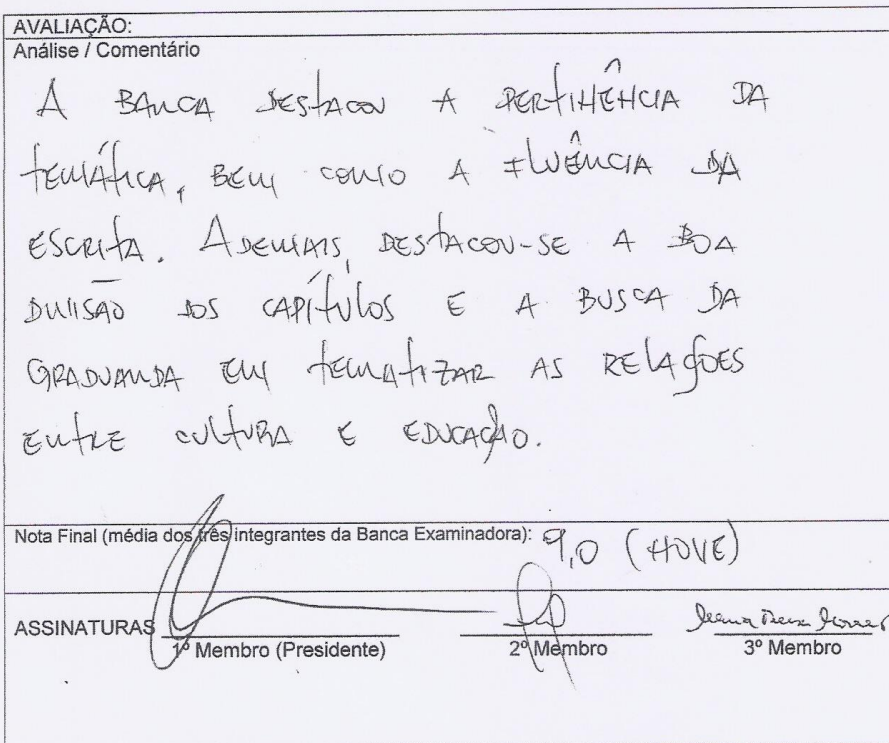 AVALIAÇÃO:
Análise / Comentário
A BANCA DESTACOU A PERTINÊNCIA DA
TEMÁTICA, BEM COMO A FLUÊNCIA DA
ESCRITA. ADEMAIS, DESTACOU-SE A BOA
DIVISÃO DOS CAPÍTULOS E A BUSCA DA
GRADUANDA EM TEMATIZAR AS RELAÇÕES
ENTRE CULTURA E EDUCAÇÃO.
Nota Final (média dos três integrantes da Banca Examinadora): 9,0 (NOVE)
ASSINATURAS
1º Membro (Presidente) 2º Membro 3º Membro